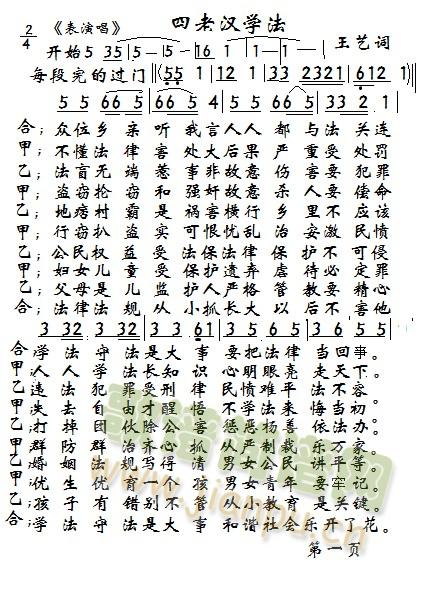 四老汉学法
2/4 《表演唱》 王艺词
开始5 35 | 5 - | 5 - | 16 1 | 1 - | 1 - |
每段完的过门 ‖(55 1 | 12 1 | 33 2321 | 612 1)
5 5 | 66 5 | 66 5 4 | 5 5 | 66 5 | 33 2 |
合；众位乡亲听我言人人都与法关连
甲；不懂法律害处大后果严重受处罚
乙；法盲无端惹事非故意伤害要犯罪
甲；盗窃抢窃和强奸故意杀人要偿命
乙；地痞村霸是祸害横行乡里不应该
甲；行窃扒盗实可恨忧乱治安激民愤
乙；公民权益受法保法律保护不可侵
甲；妇女儿童受法保护遗弃虐待必定罪
乙；父母是儿监护人严格管教要精心
合；法律法规从小抓长大以后不害他
3 32 | 3 32 | 3 3 | 61 1 | 3 6 5 | 3 6 5 | 3 6 | 5 5 |
合；学法守法是大事要把法律当回事。
甲；人人学法长知识心明眼亮走天下。
乙；违法犯罪受刑律民愤难平法不容。
甲；失去自由才醒悟不学法来悔当初
乙；打掉团伙除公害惩恶杨善依法办。
甲；群防群治齐心抓从严制裁乐万家。
乙；婚姻法规写得清男女公民讲平等
乙；优生优育一个孩男女青年要牢记
合；孩子有错别不管从小教育是关键。
学法守法是大事和谐社会乐开了花。
歌谱简谱网
www.jianpu.cn
第一页